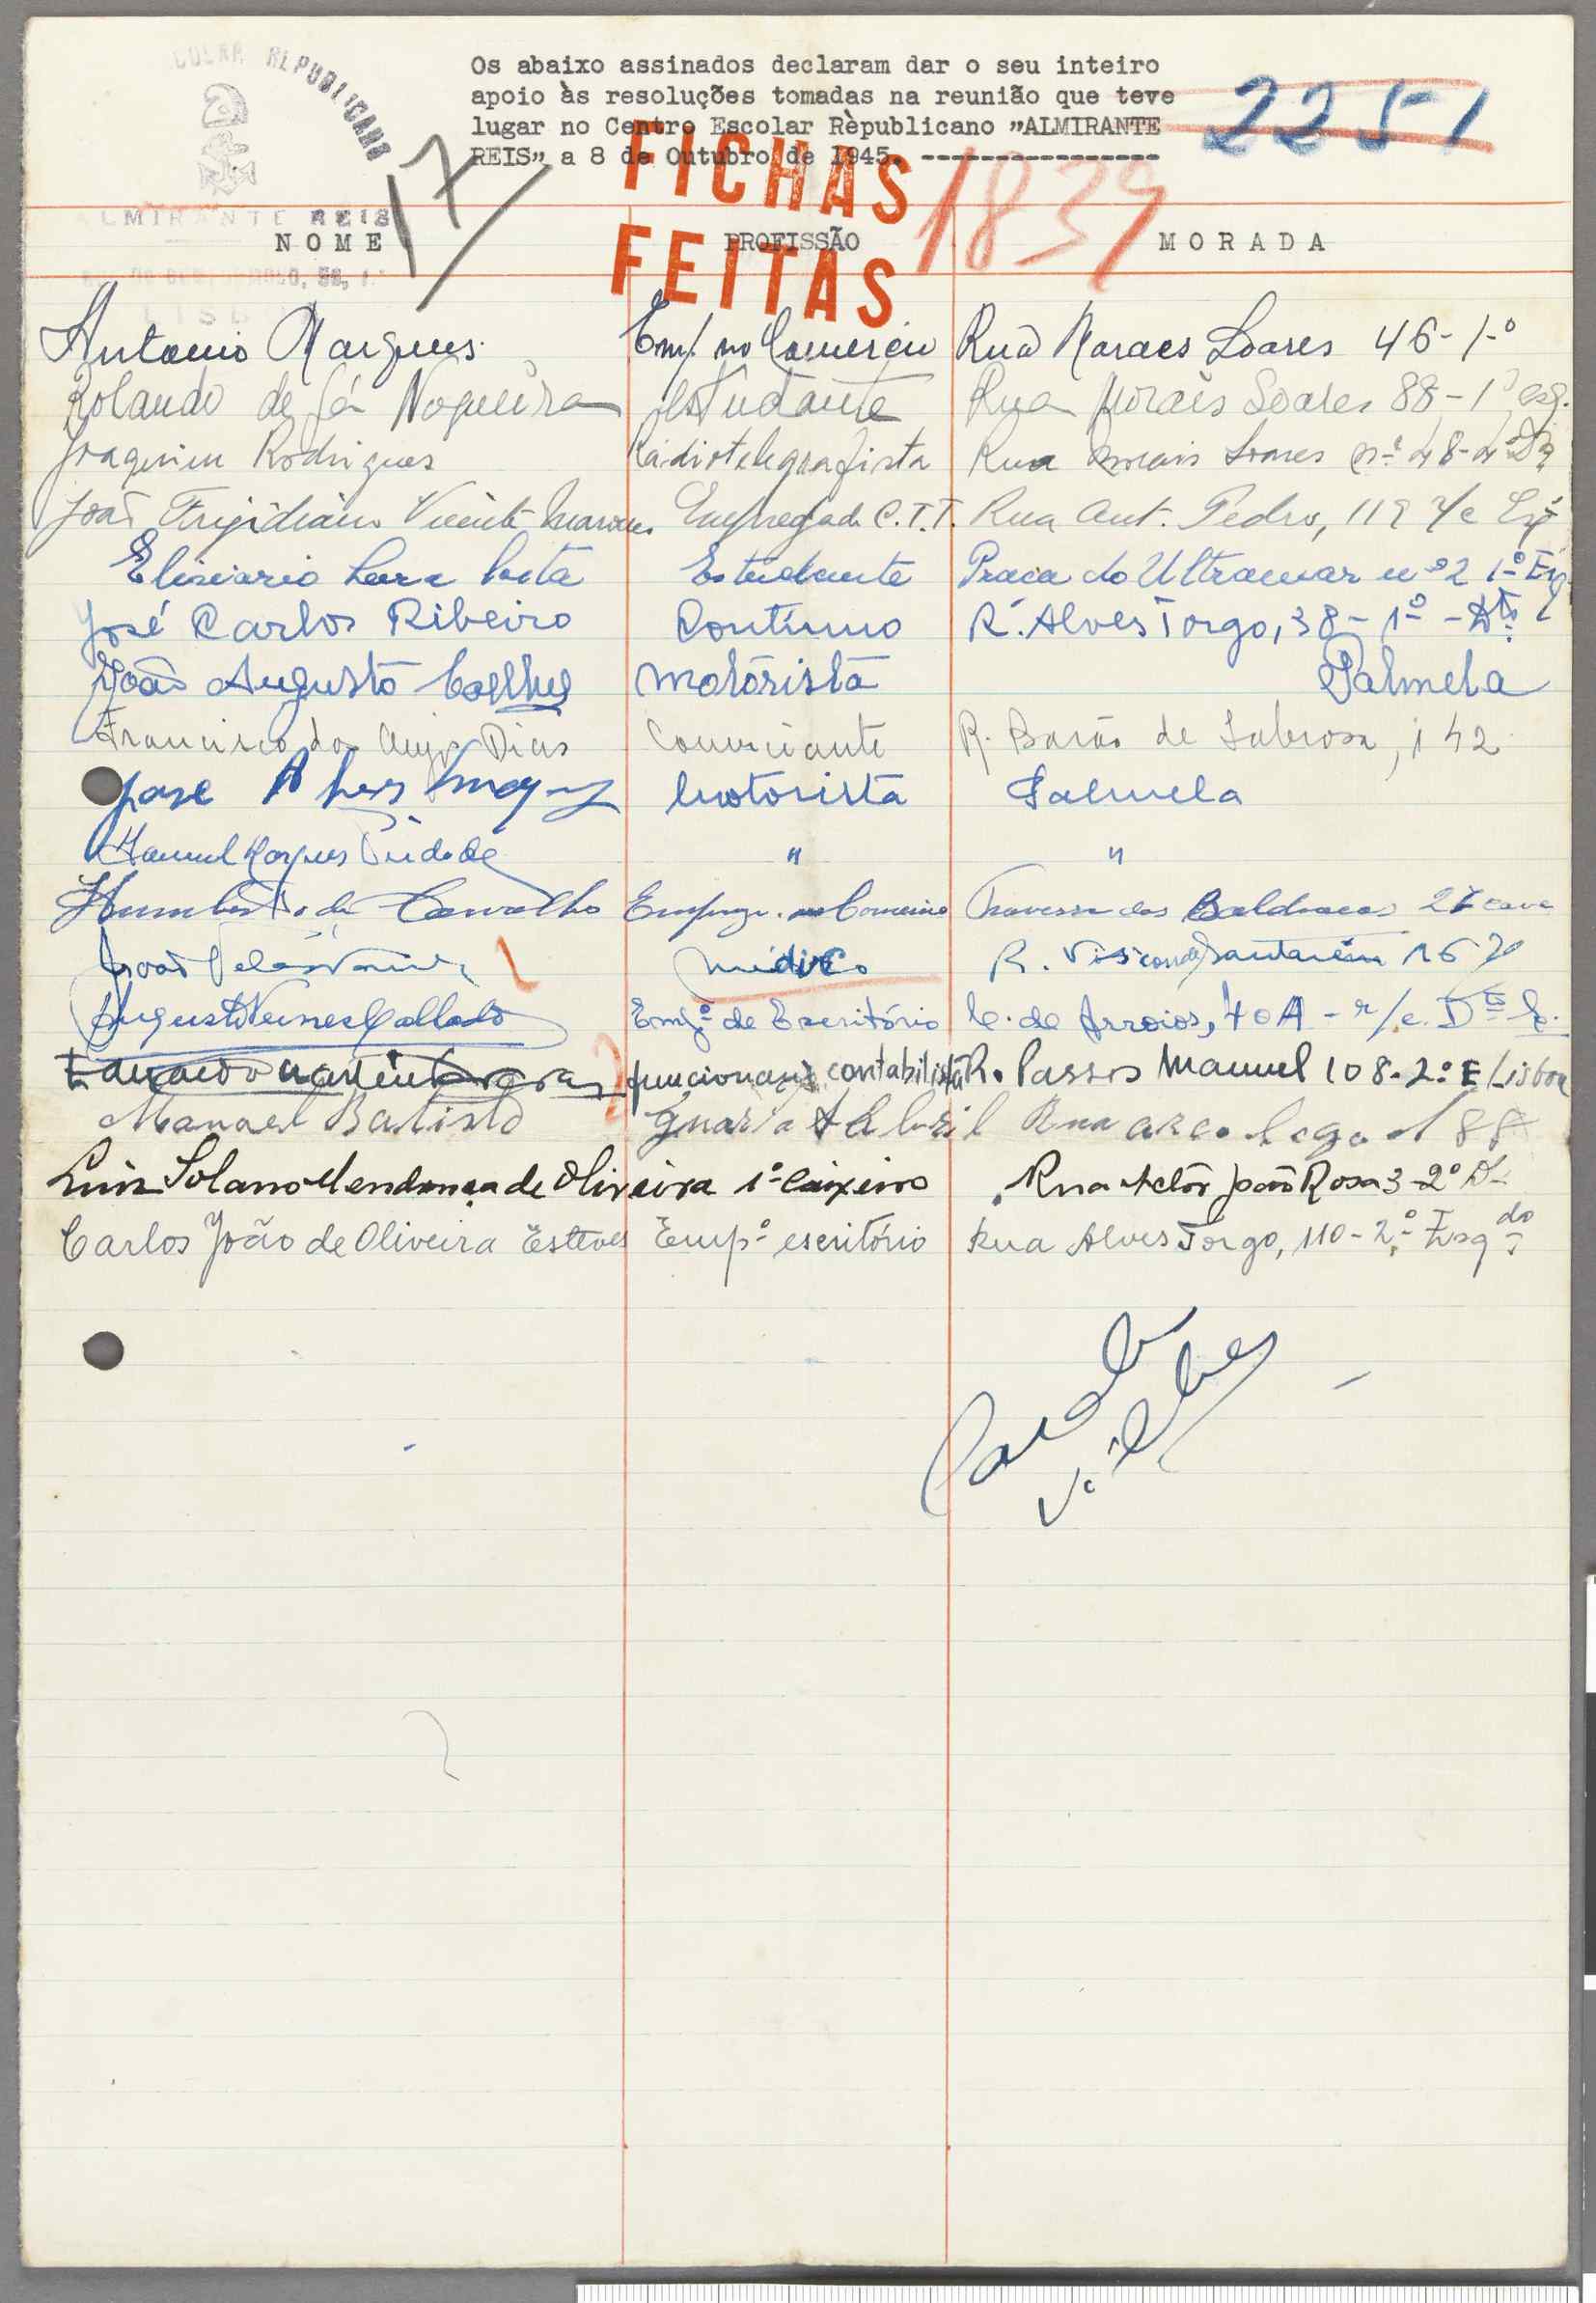 COLAR REPUBLICANO
Os abaixo assinados declaram dar o seu inteiro
apoio às resoluções tomadas na reunião que teve
lugar no Centro Escolar Rèpublicano "ALMIRANTE
REIS" a 8 de Outubro de 1945. ----------------
2251
17
FICHAS
FEITAS
1839
ALMIRANTE REIS
NOME PROFISSÃO MORADA
Antonio Marques Emp. no Comercio Rua Moraes Soares 46-1º
Rolando de Sá Nogueira estudante Rua Morais Soares 88-1º esq.
Joaquim Rodrigues Rádiotelegrafista Rua Morais Soares nº 48-4º Dt
João Frigidiano Vicente Marques Empregado C.T.T. Rua Ant. Pedro, 119 r/c Esq
Elisiario Estudante Praça do Ultramar nº 2 1º Esq
José Carlos Ribeiro Contínuo R. Alves Torgo, 38-1º-Dtº
João Augusto Coelho Motorista Palmela
Francisco dos Anjos Dias Comerciante R. Barão de Sabrosa, 142
José Motorista Palmela
Manuel Marques Piedade " "
Humberto de Carvalho Empreg. no Comercio Travessa das Baldracas 27 cave
João médico R. Visconde Santarém 16
Augusto Nunes Collado Empº de Escritório C. de Arroios, 40A - r/c. Dtº
Eduardo contabilista R. Passos Manuel 108-2º E Lisboa
Manuel Batista Rua
Luiz Solano Mendonça de Oliveira 1º Caixeiro Rua Actôr João Rosa 3-2º D.
Carlos João de Oliveira Esteves Empº escritório Rua Alves Torgo, 110-2º- Esqdo